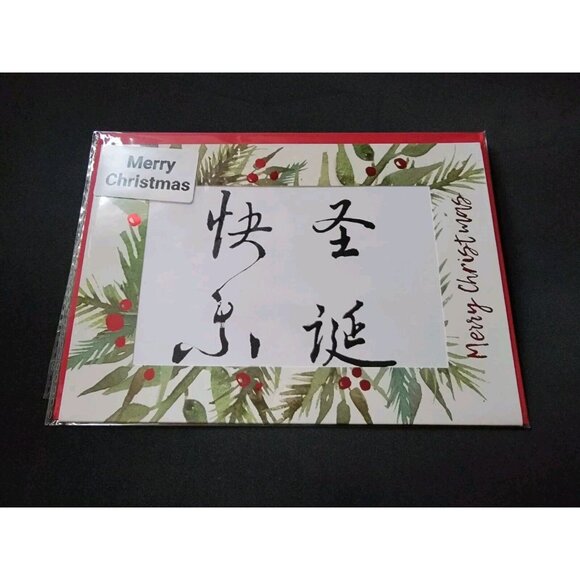 Merry
Christmas
圣诞
快乐
Merry Christmas